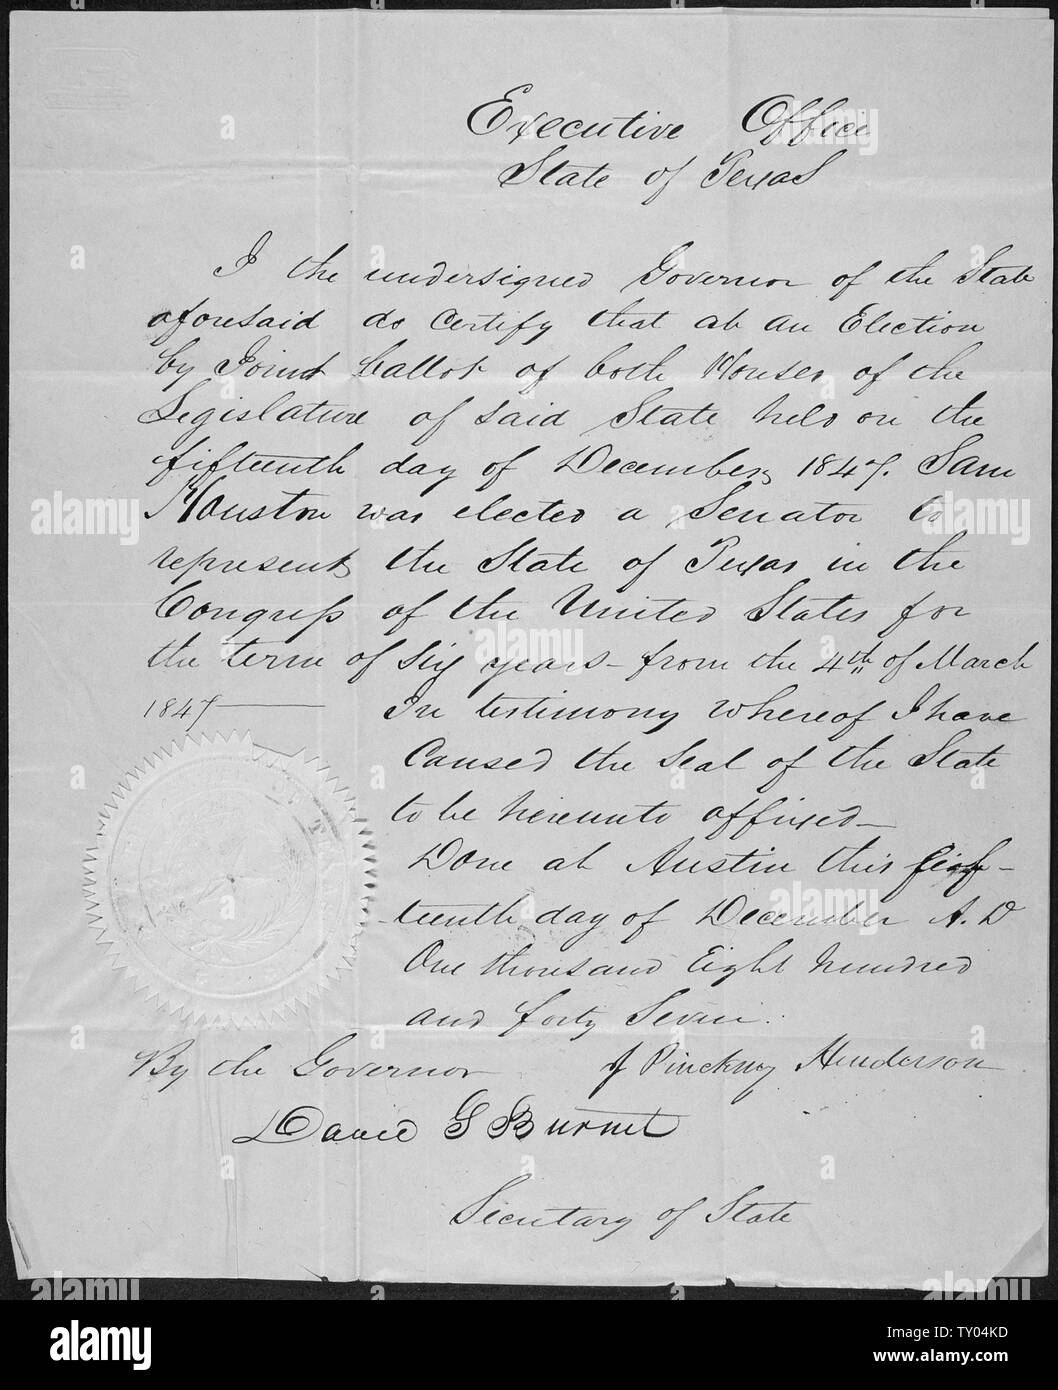 Executive Office
State of Texas
I the undersigned Governor of the State
aforesaid do Certify that at an Election
by Joint ballot of both Houses of the
Legislature of said State held on the
fifteenth day of December, 1847. Sam
Houston was elected a Senator to
represent the State of Texas in the
Congress of the United States for
the term of six years - from the 4th of March
1847 —
In testimony whereof I have
Caused the seal of the State
to be hereunto affixed —
Done at Austin this fif-
teenth day of December A. D
One thousand Eight hundred
and forty Seven.
By the Governor J Pinckney Henderson
David G Burnet
Secretary of State
alamy
Image ID: TY04KD
www.alamy.com